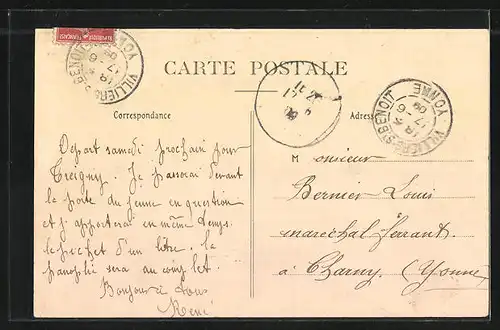 CARTE POSTALE
Correspondance
Départ samedi prochain pour
Treigny. Je passerai devant
la porte du jeune en question
et j'apporterai en même temps
le pichet d'un litre. la
panoplie sera au complet.
Bonjour à tous
René
Monsieur
Bernier Louis
maréchal-ferrant
à Charny. (Yonne)
VILLIERS-ST-BENOIT
YONNE
VILLIERS-ST-BENOIT
YONNE